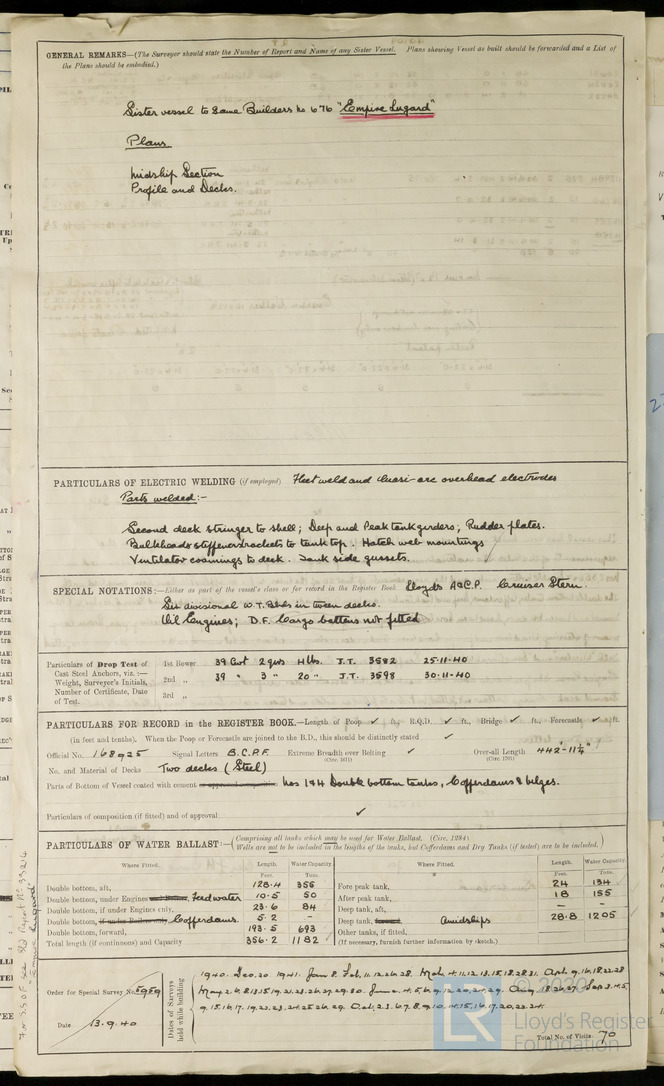 GENERAL REMARKS—(The Surveyor should state the Number of Report and Name of any Sister Vessel. Plans showing Vessel as built should be forwarded and a List of
the Plans should be embodied.)
Sister vessel to Same Builders No 676 "Empire Lugard"
Plans
Midship Section
Profile and Decks.
PARTICULARS OF ELECTRIC WELDING (if employed) Fleetweld and Quasi-arc overhead electrodes
Parts welded:-
Second deck stringer to shell; Deep and Peak tank girders; Rudder plates.
Bulkheads stiffeners brackets to tank top. Hatch web mountings
Ventilator coamings to deck. Tank side gussets.
SPECIAL NOTATIONS:—Either as part of the vessel's class or for record in the Register Book Lloyds A&C.P. Cruiser Stern.
Six divisional W.T. Blkds in tween decks.
Oil Engines; D.F. Cargo battens not fitted
Particulars of Drop Test of
Cast Steel Anchors, viz.:—
Weight, Surveyor's Initials,
Number of Certificate, Date
of Test.
1st Bower 39 Cwt 2 qrs 4 lbs. J.T. 3582 25-11-40
2nd „ 39 " 3 " 20 " J.T. 3598 30-11-40
3rd „
PARTICULARS FOR RECORD in the REGISTER BOOK.—Length of Poop ✓ ft., R.Q.D. ✓ ft., Bridge ✓ ft., Forecastle ✓ ft.
(in feet and tenths). When the Poop or Forecastle are joined to the B.D., this should be distinctly stated ✓
Official No. 168925 Signal Letters B.C.P.F. Extreme Breadth over Belting ✓ Over-all Length 442'-11¼"
(Circ. 1671) (Circ. 1703)
No. and Material of Decks Two decks (Steel)
Parts of Bottom of Vessel coated with cement Nos 1&4 Double bottom tanks, Cofferdams & bilges.
Particulars of composition (if fitted) and of approval ✓
PARTICULARS OF WATER BALLAST:— (Comprising all tanks which may be used for Water Ballast. (Circ. 1284)
Wells are not to be included in the lengths of the tanks, but Cofferdams and Dry Tanks (if tested) are to be included.)
Where Fitted. Length. Water Capacity. Where Fitted. Length. Water Capacity.
Feet. Tons. Feet. Tons.
Double bottom, aft, 128.4 355 Fore peak tank, 24 134
Double bottom, under Engines Feedwater 10.5 50 After peak tank, 18 155
Double bottom, if under Engines only, 23.6 84 Deep tank, aft, – –
Double bottom, Cofferdams. 5.2 – Deep tank, Amidships 28.8 1205
Double bottom, forward, 193.5 693 Other tanks, if fitted,
Total length (if continuous) and Capacity 356.2 1182 (If necessary, furnish further information by sketch.)
Order for Special Survey No. 5959
Date 13.9.40
Dates of Surveys
held while building
Total No. of Visits 70
© 2020
LR
Lloyd's Register
Foundation